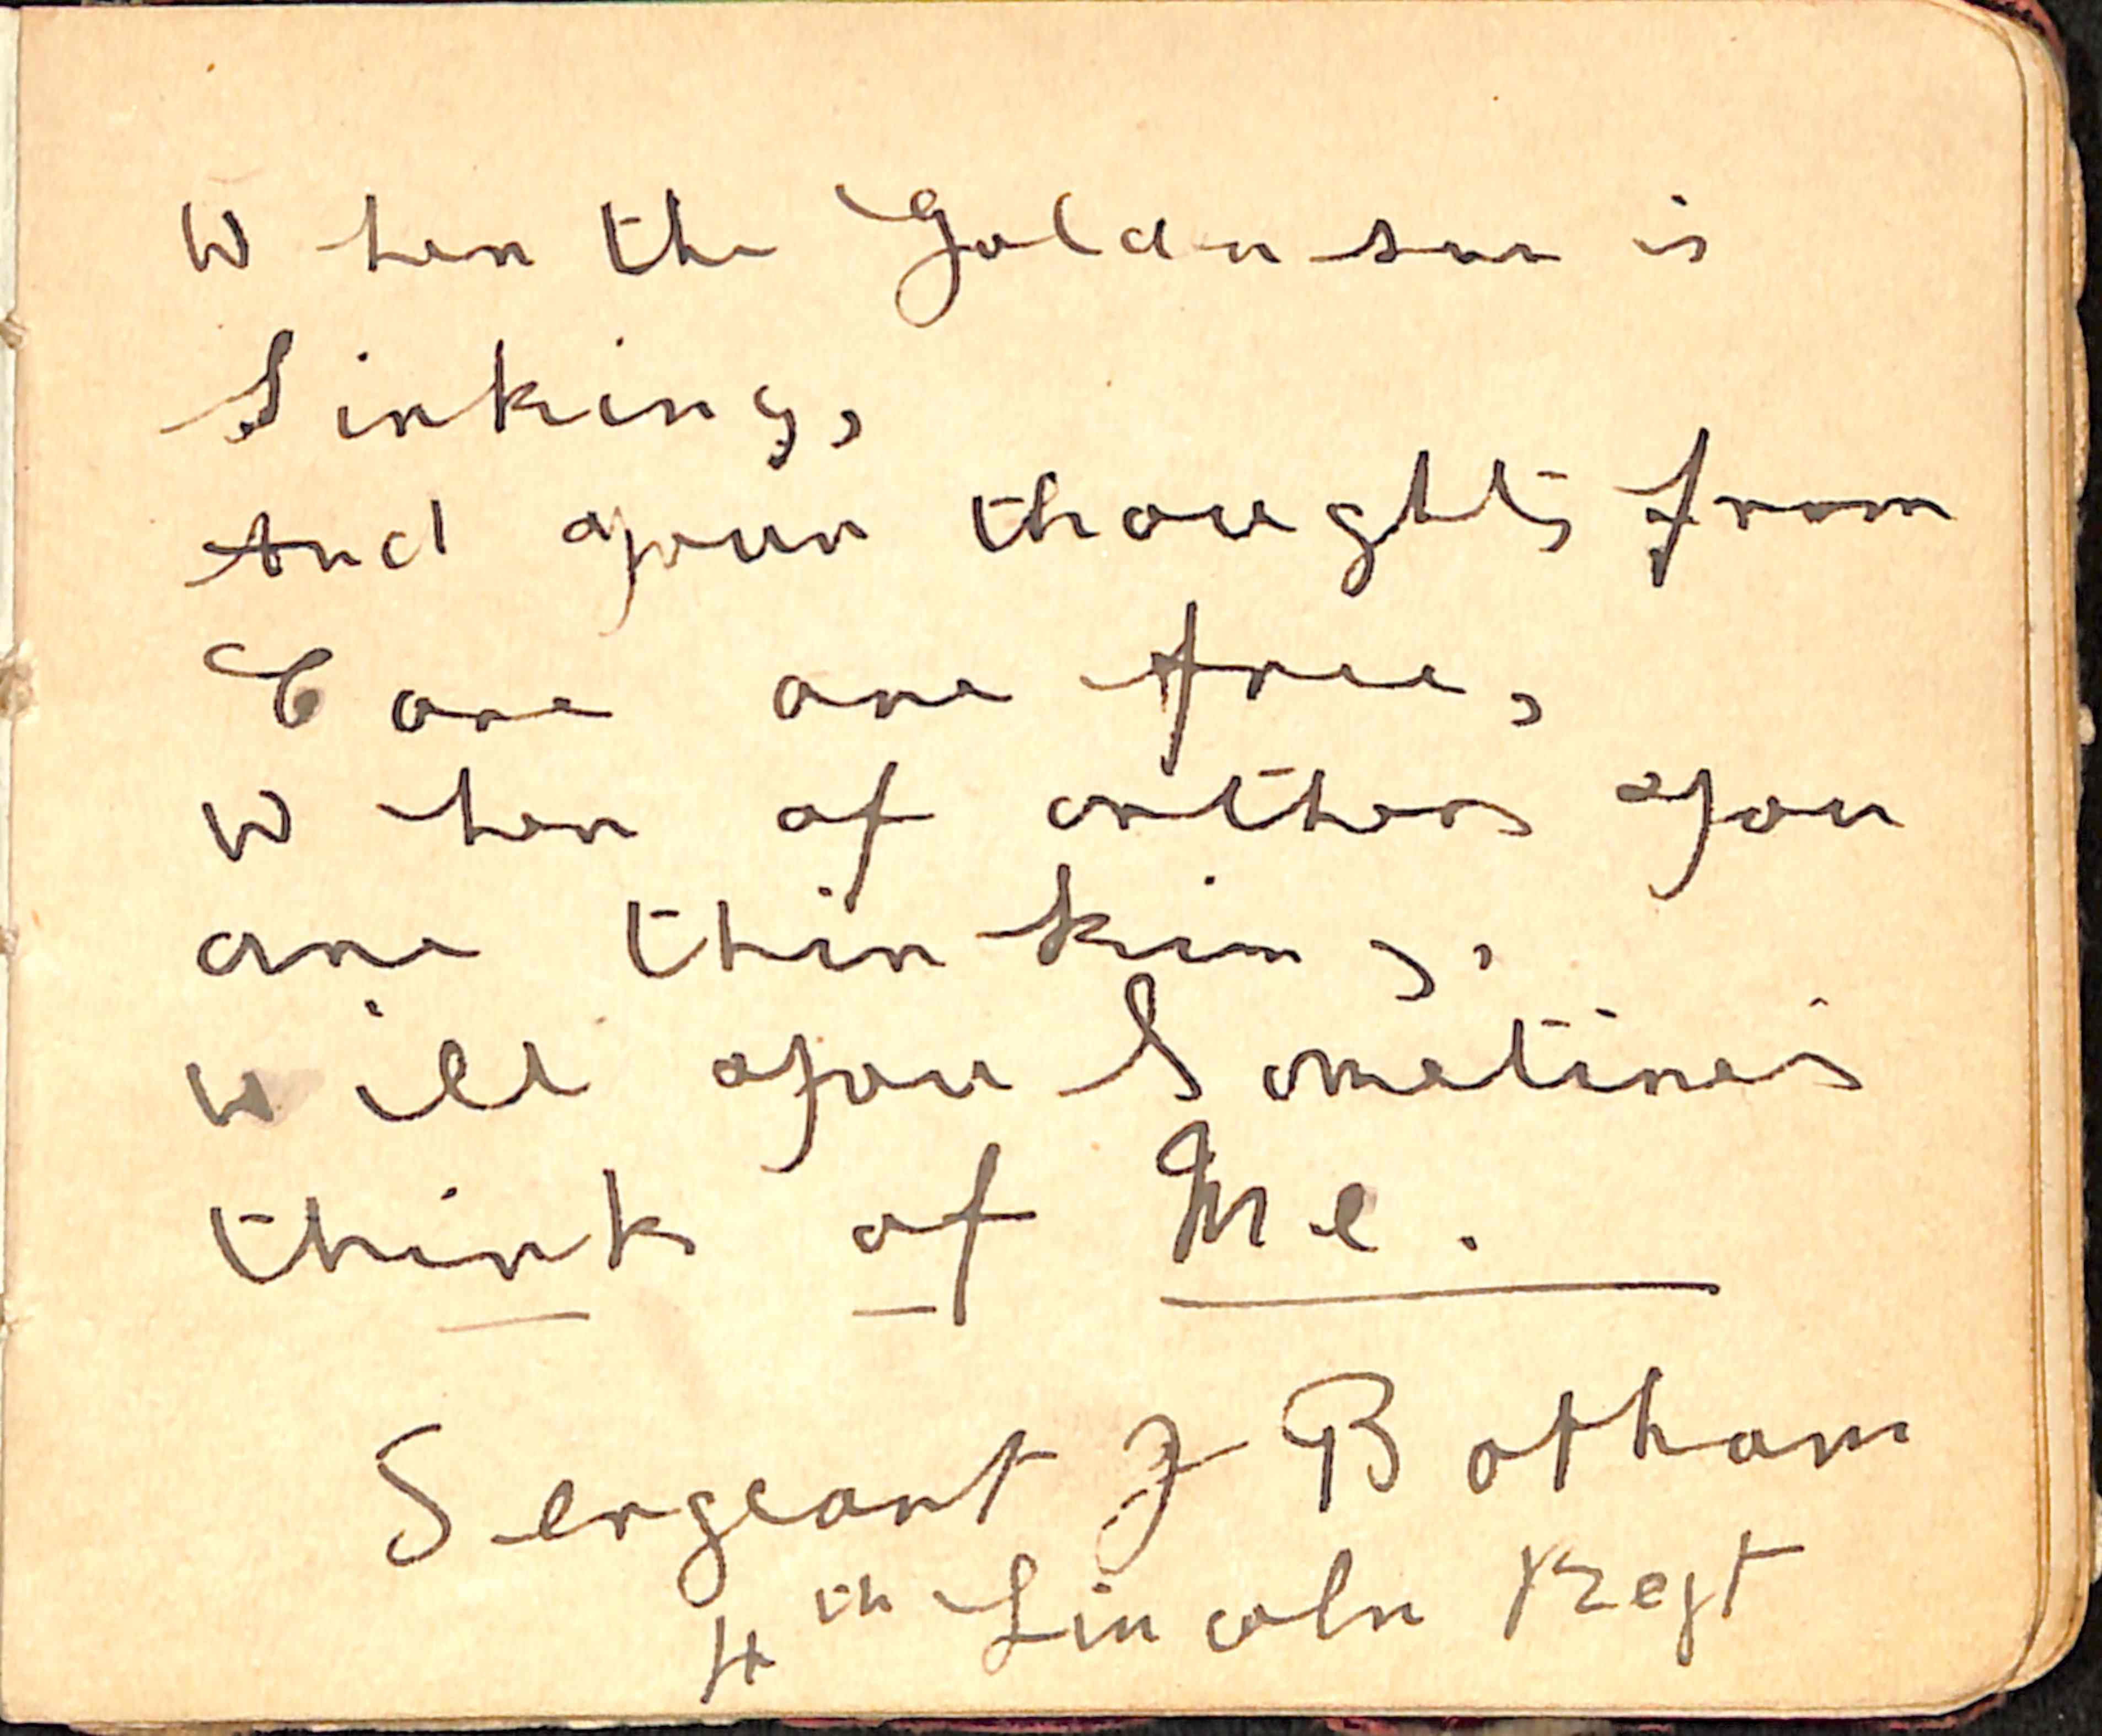 When the Golden sun is
Sinking,
And your thoughts from
Care are free,
When of others you
are thinking,
Will you Sometimes
think of Me.
Sergeant J Botham
4th Lincoln Regt